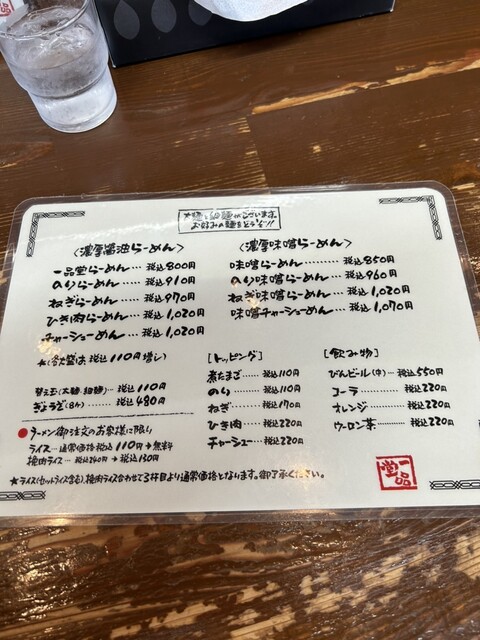 麺がございます。
お好みの麺をどうぞ!!
〈濃厚醤油らーめん〉
一品堂らーめん… 税込800円
のりらーめん…… 税込910円
ねぎらーめん…… 税込970円
ひき肉らーめん… 税込1,020円
チャーシューめん… 税込1,020円
*(各大盛は 税込110円増し)
替え玉(太麺・細麺)…… 税込110円
ぎょうざ(8ヶ)……… 税込480円
●ラーメン御注文のお客様に限り
ライス…通常価格税込110円→無料
挽肉ライス…税込240円→税込130円
〈濃厚味噌らーめん〉
味噌らーめん……… 税込850円
のり味噌らーめん… 税込960円
ねぎ味噌らーめん… 税込1,020円
味噌チャーシューめん… 税込1,070円
[トッピング]
煮たまご…税込110円
のり………税込110円
ねぎ………税込170円
ひき肉……税込220円
チャーシュー…税込220円
[飲み物]
びんビール(中)…税込550円
コーラ………税込220円
オレンジ……税込220円
ウーロン茶…税込220円
★ライス(カットライス含む)、挽肉ライス合わせて3杯目より通常価格となります。御了承ください。
一品堂